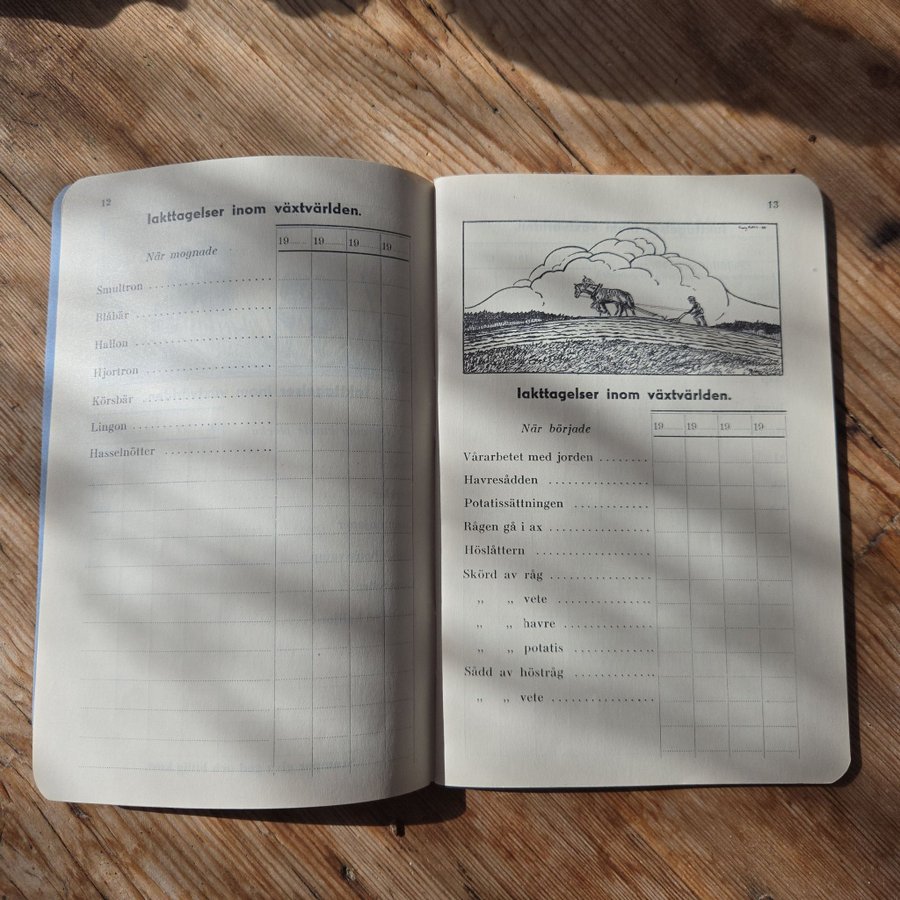 12
Iakttagelser inom växtvärlden.
När mognade
19 19 19 19
Smultron
Blåbär
Hallon
Hjortron
Körsbär
Lingon
Hasselnötter
13
Iakttagelser inom växtvärlden.
När började
19 19 19 19
Vårarbetet med jorden
Havresådden
Potatissättningen
Rågen gå i ax
Höslåttern
Skörd av råg
„ „ vete
„ „ havre
„ „ potatis
Sådd av höstråg
„ „ vete